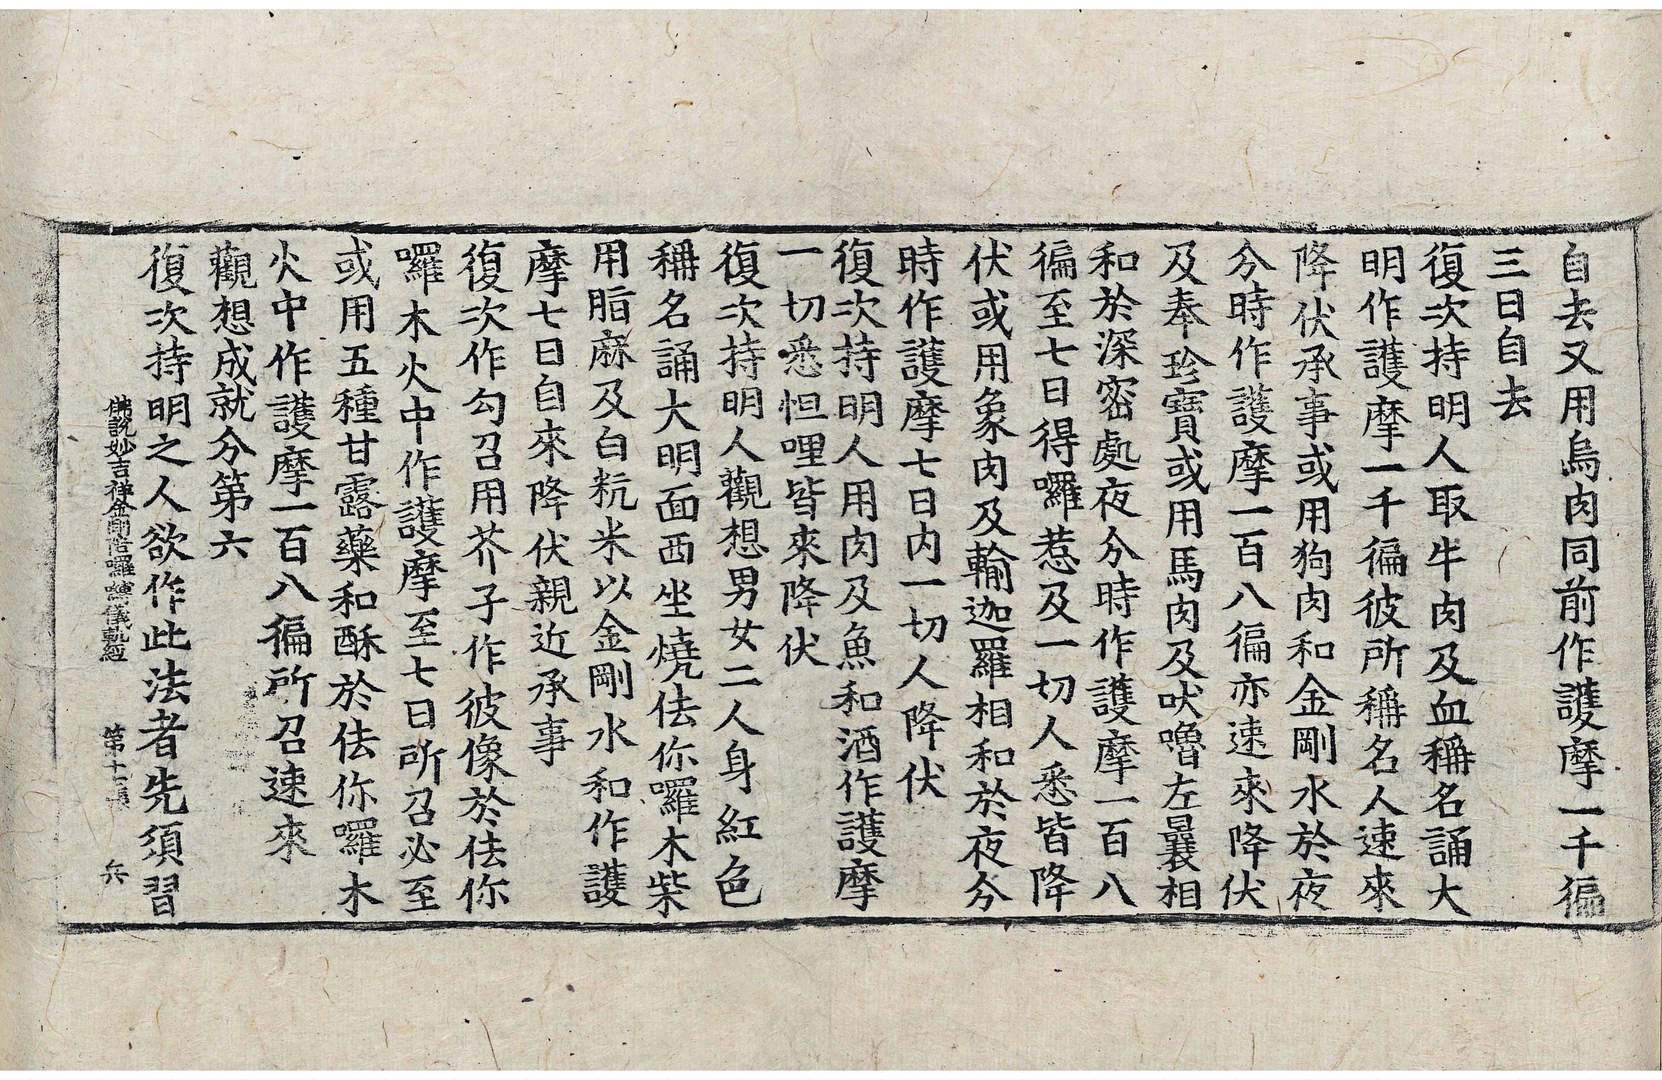 自去又用烏肉同前作護摩一千徧
三日自去
復次持明人取牛肉及血稱名誦大
明作護摩一千徧彼所稱名人速來
降伏承事或用狗肉和金剛水於夜
分時作護摩一百八徧亦速來降伏
及奉珍寶或用馬肉及吠嚕左曩相
和於深密處夜分時作護摩一百八
徧至七日得囉惹及一切人悉皆降
伏或用象肉及輸迦羅相和於夜分
時作護摩七日內一切人降伏
復次持明人用肉及魚和酒作護摩
一切悉怛哩皆來降伏
復次持明人觀想男女二人身紅色
稱名誦大明面西坐燒佉你囉木柴
用脂麻及白秔米以金剛水和作護
摩七日自來降伏親近承事
復次作勾召用芥子作彼像於佉你
囉木火中作護摩至七日所召必至
或用五種甘露藥和酥於佉你囉木
火中作護摩一百八徧所召速來
觀想成就分第六
復次持明之人欲作此法者先須習
佛說妙吉祥金剛陪囉嚩儀軌經 第十一張 兵